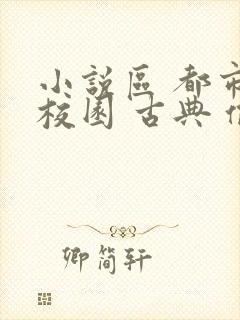 小說區 都市
校園 古典
卿简轩